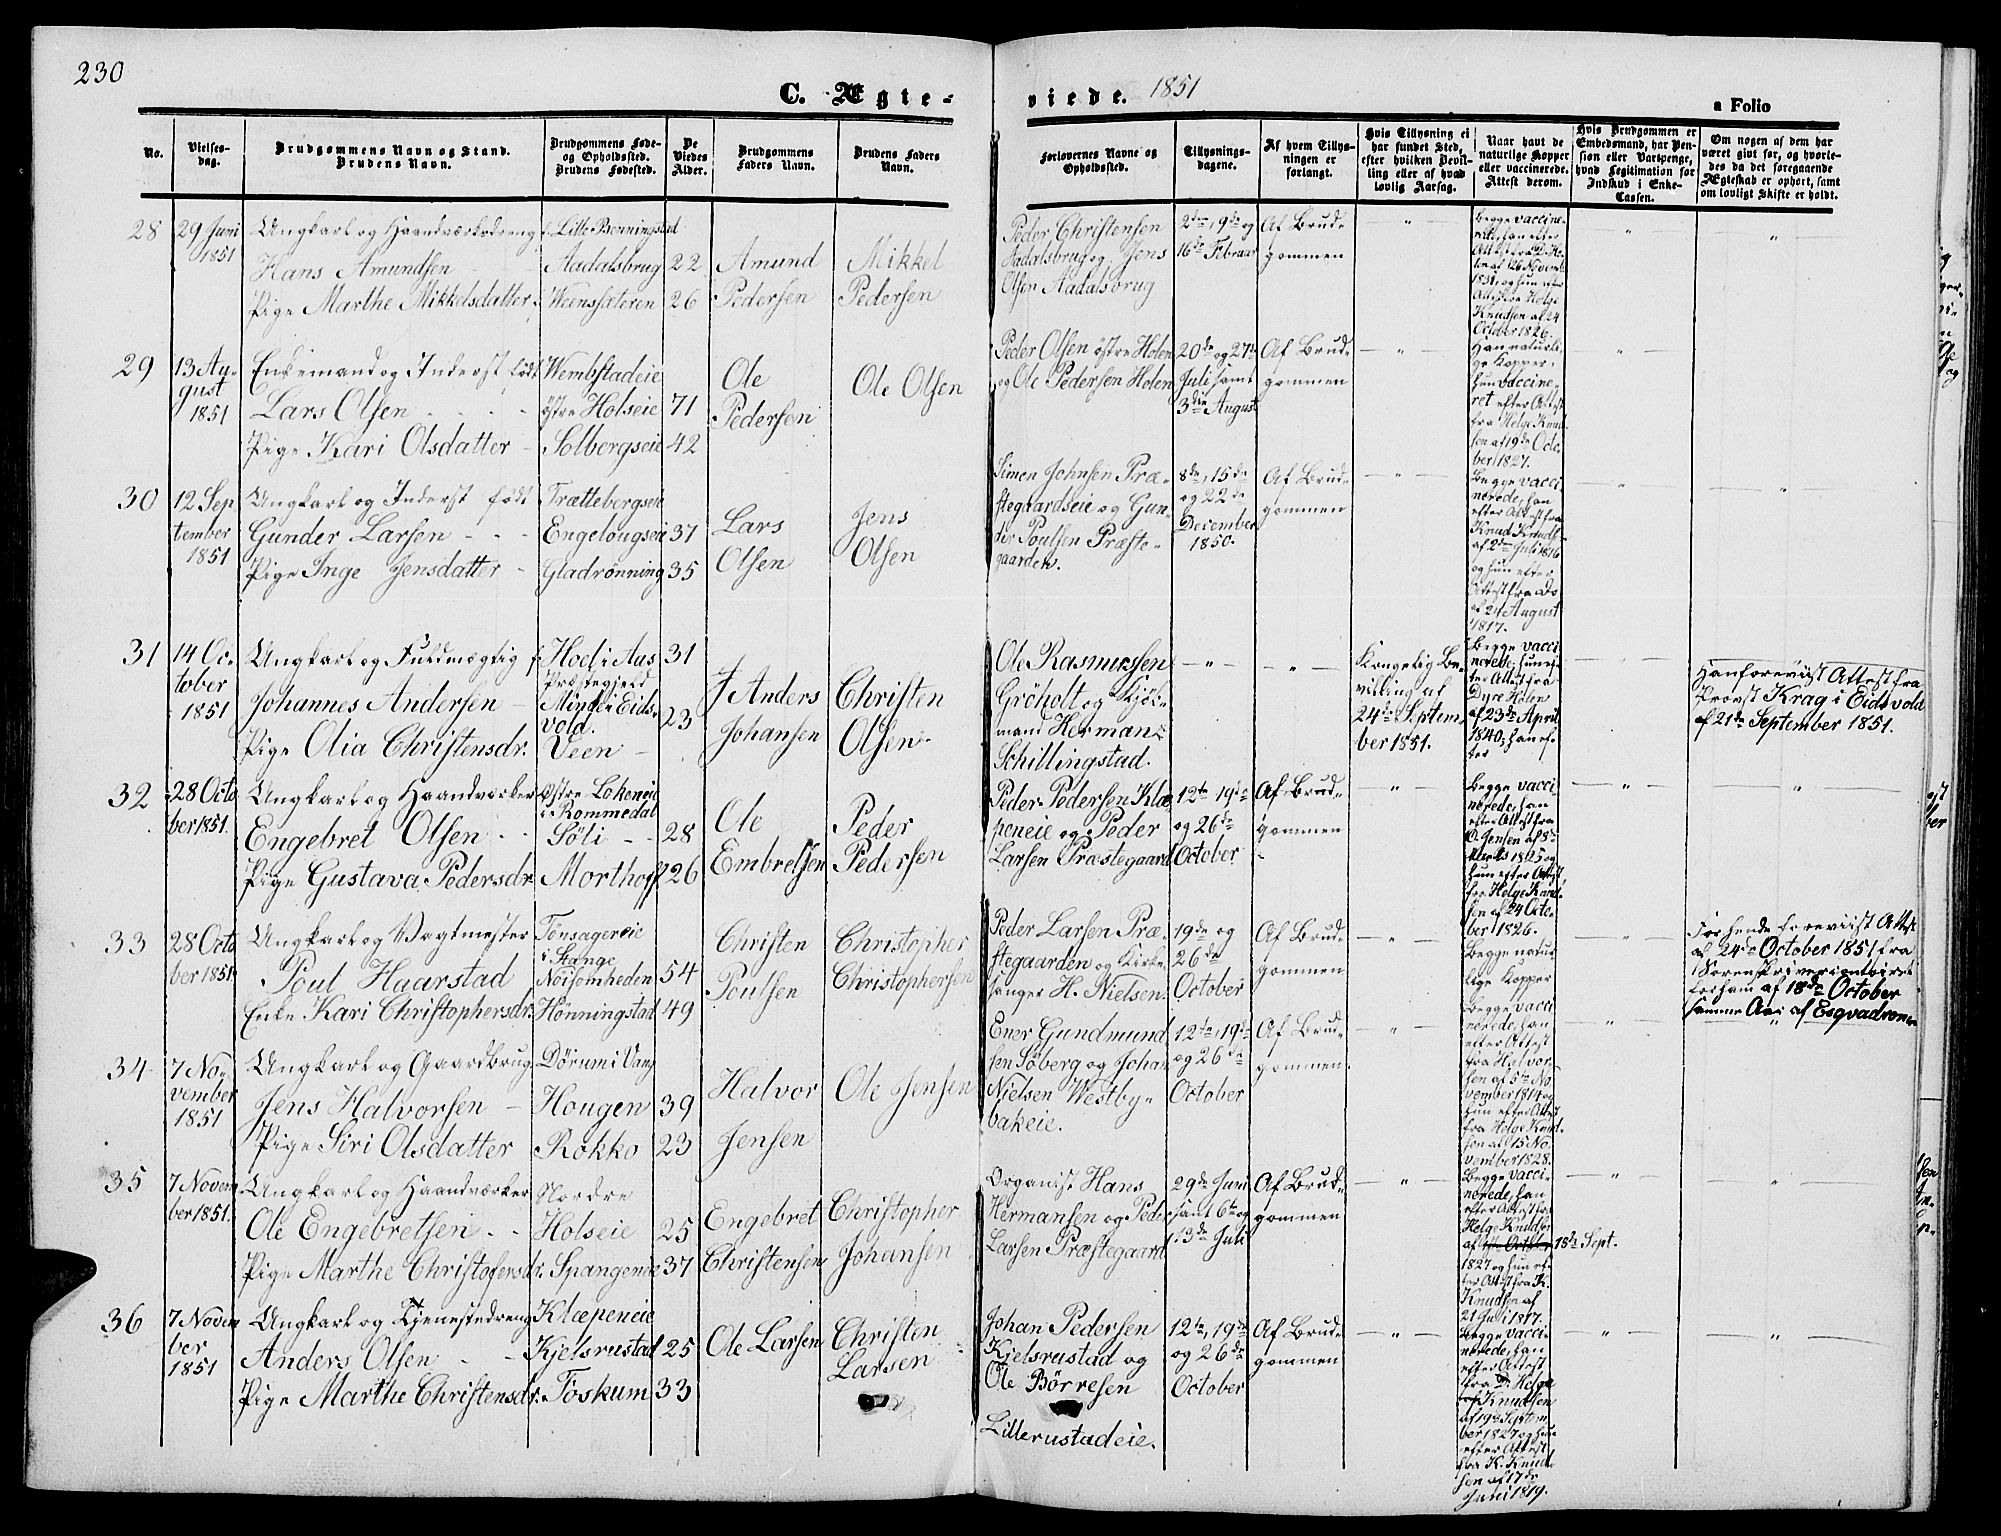 230
C. Ægte-
viede. 1851
a Folio
No.
Vielses-
dag.
Brudgommens Navn og Stand.
Brudens Navn.
Brudgommens Føde-
og Opholdssted.
Brudens Fødested.
De
Viedes
Alder.
Brudgommens
Faders Navn.
Brudens Faders
Navn.
Forlovernes Navne og
Opholdssted.
Tillysnings-
dagene.
Af hvem Tillys-
ningen er
forlangt.
Hvis Tillysning ei
har fundet Sted,
efter hvilken Bevil-
ling eller af hvad
lovlig Aarsag.
Naar havt de
naturlige Kopper
eller vaccinerede.
Attest derom.
Hvis Brudgommen er
Embedsmand, har Pen-
sion eller Vartpenge,
hvad Legitimation for
Indskud i Enke-
Cassen.
Om nogen af dem har
været givt før, og hvorle-
des da det foregaaende
Ægteskab er ophørt, samt
om lovligt Skifte er holdt.
28
29 Juni
1851
Ungkarl og Haandværksdreng f.
Hans Amundsen
Pige Marthe Mikkelsdatter
Lille Benningstad
Aadalsbrug
Weensæteren
22
26
Amund
Pedersen
Mikkel
Pedersen
Peder Christensen
Aadalsbrug og Jens
Olsen Aadalsbrug
2den, 9de og
16de Februar
Af Brud-
gommen
Begge vaccine-
October 1826.
29
13 Au-
gust
1851
Enkemand og Inderst født
Lars Olsen
Pige Kari Olsdatter
Wembstadeie
østre Holseie
Solbergseie
71
42
Ole
Pedersen
Ole Olsen
Peder Olsen østre Holen
og Ole Pedersen Holen
20de og 27de
Juli samt
3die August
Af Brud-
gommen
Han naturli-
ge Kopper,
hun vaccine-
ret efter Attest
fra Helge Knud-
sen af 19de Octo-
ber 1827.
30
12 Sep
tember
1851
Ungkarl og Inderst født
Gunder Larsen
Pige Inge Jensdatter
Trættebergseie
Engelougseie
Gladrønning
37
35
Lars
Olsen
Jens
Olsen
Simen Johnsen Præ-
stegaardseie og Gun-
der Poulsen Præste-
gaarden.
8de, 15de
og 22de
December
1850.
Af Brud-
gommen
Begge vacci
nerede, han
efter Attest fra
Knud Knuds-
af 2den Juli 1816
og hun efter
Attest fra Do
af 24 August
1817.
31
14 Oc-
tober
1851
Ungkarl og Fuldmægtig f.
Johannes Andersen
Pige Olia Christensdr.
Hoel i Aas
Præstegjeld
Minde i Eids-
vold.
Veen
31
23
Anders
Johansen
Christen
Olsen
Ole Rasmussen
Grøholt og Kjøb-
mand Herman
Schillingstad.
Kongelig Be-
villing af
24de Septem-
ber 1851.
Begge vacci
nerede; hun ef-
ter Attest fra
Dyre Holen
af 23de April
1840; han ef-
ter
Han foreviist Attest fra
Provst Krag i Eidsvold
af 21de September 1851.
32
28 Octo
ber 1851.
Ungkarl og Haandværker
Engebret Olsen
Pige Gustava Pedersdr.
Østre Lokeneie
i Rommedal
Søli
Morthoff
28
26
Ole
Embretsen
Peder
Pedersen
Peder Pedersen Klæ
peneie og Peder
Larsen Præstegaard
12te, 19de
og 26de
October
Af Brud-
gommen
Begge vacci
nerede, han
efter Attest fra
O. Jensen af 8de
1825 og
hun efter Attest
fra Helge Knud-
sen af 24 Octo-
ber 1826.
33
28 Octo
ber 1851
Ungkarl og Vagtmester
Poul Haarstad
Enke Kari Christophersdr.
Tønsagereie
i Stange
Nøisomheden
Hønningstad
54
49
Christen
Poulsen
Christopher
Christophersen
Peder Larsen Præ-
stegaarden og Kirke-
sanger H. Nielsen.
19de og
26de
October
Af Brud-
gommen
Begge natur
lige Kopper
For hende foreviist Attest
af 24de October 1851 fra
Sorenskriver
for ham af 18de October
samme Aar af Esqvadronen
34
7 No-
vember
1851
Ungkarl og Gaardbrug
Jens Halvorsen
Pige Siri Olsdatter
Dørum i Vang
Hougen
Rokko
39
23
Halvor
Jensen
Ole Jensen
Ener Gundmund
sen Søberg og Johan
Nielsen Westby-
bakeie.
12te, 19de
og 26de
October
Af Brud-
gommen.
Begge vacci
nerede, han
efter Attest
fra Halvor-
sen af 5te No
vember 1814 og
hun efter Attest
fra Helge Knud-
sen af 15 No
vember 1828.
35
7 Novem
ber 1851.
Ungkarl og Haandværker
Ole Engebretsen
Pige Marthe Christofersdr.
Nordre
Holseie
Spangeneie
25
37
Engebret
Christensen
Christopher
Johansen
Organist Hans
Hermansen og Peder
Larsen Præstegaard
29de Juni
samt 6te og
13de Juli
Af Brud-
gommen
Begge vacci-
nerede, han
efter Attest fra
Helge Knudsen
af 18de Sept.
1827 og hun ef-
ter Attest fra K.
Knudsen af
21 Juli 1817.
36
7 Novem
ber
1851
Ungkarl og Tjenestedreng
Anders Olsen
Pige Marthe Christensdr.
Klæpeneie
Kjelsrustad
Toskum
25
33
Ole Larsen
Christen
Larsen
Johan Pedersen
Kjelsrustad og
Ole Børresen
Lillerustadeie.
12te, 19de
og 26de
October
Af Brud-
gommen
Begge vacci-
nerede, han
efter Attest
fra Helge
Knudsen
af 19de Septem
ber 1827 og hun
efter Attest
fra K. Knud-
sen af 17de
Juni 1819.